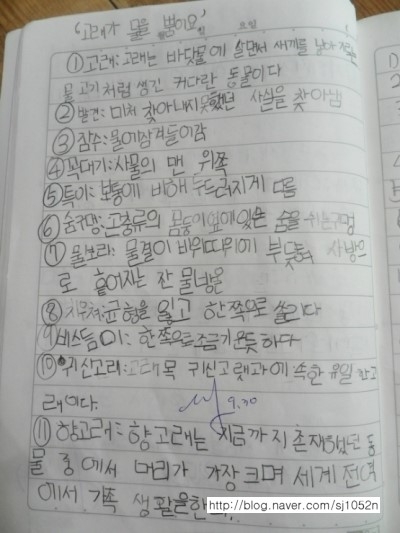 '고래가 물을 뿜어요'
①고래:고래는 바닷물에 살면서 새끼를 낳아
물고기처럼 생긴 커다란 동물이다
②발견:미처 찾아내지못했던 사실을 찾아냄
③잠수:물에잠겨들어감
④꼭대기:사물의 맨 위쪽
⑤특이:보통에 비해 두드러지게 다름
⑥숨구멍:곤충류의 몸통이옆에있는 숨을 쉬는구멍
⑦물보라:물결이 바위따위에 부딪쳐 사방으
로 흩어지는 잔 물방울
⑧치우쳐:균형을 잃고 한쪽으로 쏠리다
⑨비스듬이:한쪽으로조금기운듯하다
⑩귀신고래:고래목 귀신고랫과에 속한 유일한고
래이다.
9.30
⑪향고래:향고래는 지금까지존재했던 동
물 중에서 머리가 가장크며 세계 전역
에서 가족 생활을한다.
http://blog.naver.com/sj1052n